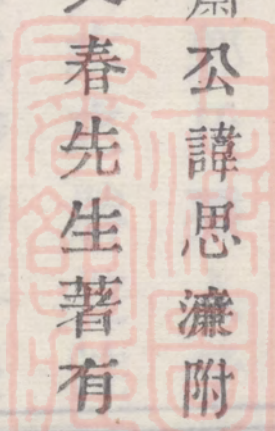 肅公諱思濂附
春先生著有